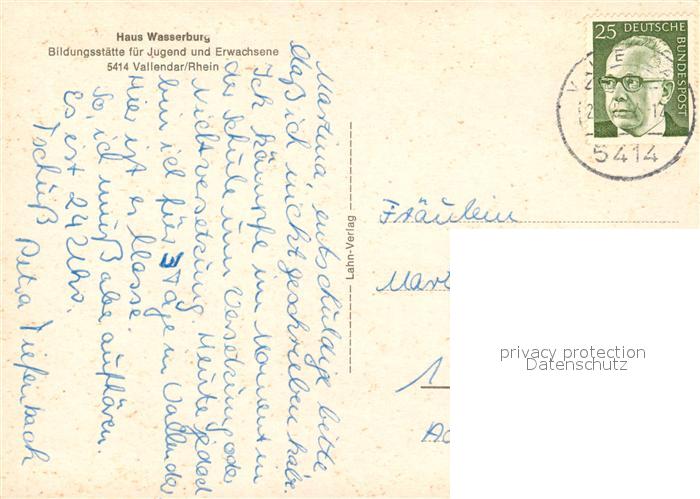 Haus Wasserburg
Bildungsstätte für Jugend und Erwachsene
5414 Vallendar/Rhein
Martina, entschuldige bitte
daß ich nicht geschrieben habe.
Ich kämpfe im Moment in
der Schule um Versetzung oder
Nichtversetzung. Heute jeden
bin ich für 3 Tage in Vallendar
Hier ist es klasse.
So, ich muß aber aufhören.
Es ist 24 Uhr.
Tschüß Petra Tiefenbach
Lahn-Verlag
25 DEUTSCHE BUNDESPOST
5414
Fräulein
Mart
1
privacy protection
Datenschutz